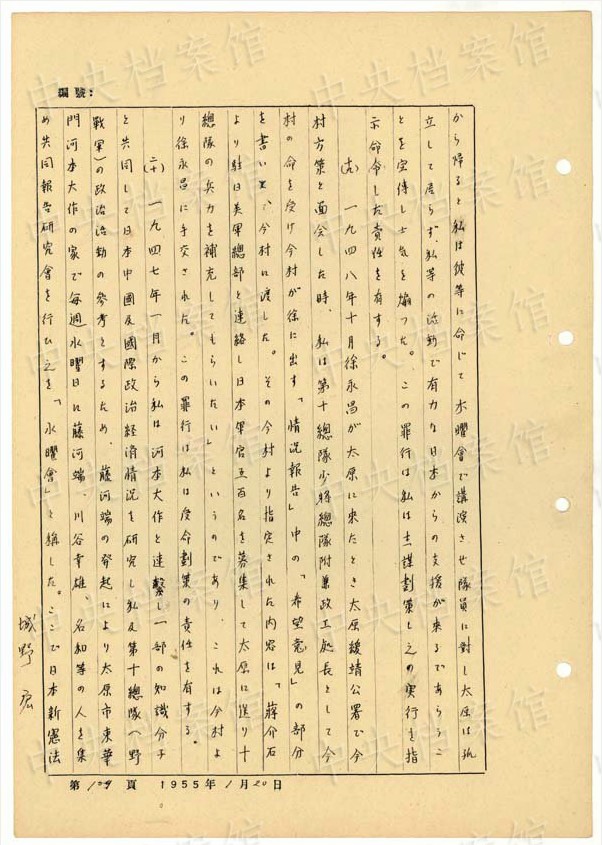 編號：
から帰ると私は彼等に命じて木曜会で講演させ隊員に対し太原は孤
立して居らず、私等の活動で有力な日本からの支援が来るであらうこ
とを宣傳し士気を煽つた。この罪行は私は主謀劃策し之の実行を指
示命令した責任を有する。
(十九) 一九四八年十月徐永昌が太原に来たとき太原綏靖公署で今
村方策と面会した時、私は第十總隊少將總隊附兼政工處長として今
村の命を受け今村が徐に出す「情況報告」中の「希望意見」の部分
を書いて、今村に渡した。その今村より指定された内容は「蔣介石
より駐日美軍總部と連絡し日本軍官五百名を募集して太原に送り十
總隊の兵力を補充してもらいたい」というのであり、これは今村よ
り徐永昌に手交された。この罪行は私は受命劃策の責任を有する。
(二十) 一九四七年一月から私は河本大作と連繫し一部の知識分子
と共同して日本中國及國際政治経済情況を研究し私及第十總隊(野
戰軍)の政治活動の參考とするため、藤河端の発起により太原市東華
門河本大作の家で毎週水曜日に藤河端、川谷幸雄、名和等の人を集
め共同報告研究會を行ひ之を「水曜會」と稱した。ここで日本新憲法
城野宏
第129頁 1955年1月20日
中央档案馆